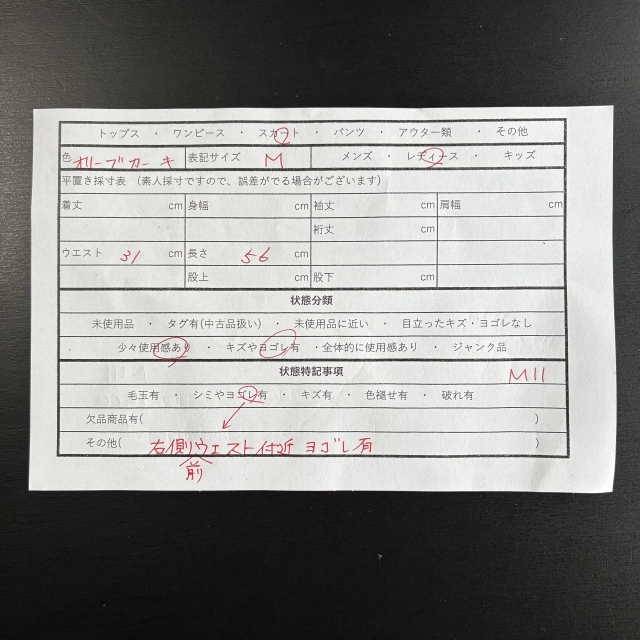 トップス ・ ワンピース ・ スカート ・ パンツ ・ アウター類 ・ その他
色 オリーブカーキ 表記サイズ M メンズ ・ レディース ・ キッズ
平置き採寸表 (素人採寸ですので、誤差がでる場合がございます)
着丈 cm 身幅 cm 袖丈 cm 肩幅 cm
裄丈 cm
ウエスト 31 cm 長さ 56 cm
股上 cm 股下 cm
状態分類
未使用品 ・ タグ有(中古品扱い) ・ 未使用品に近い ・ 目立ったキズ・ヨゴレなし
少々使用感あり ・ キズやヨゴレ有 ・全体的に使用感あり ・ ジャンク品
状態特記事項 M11
毛玉有 ・ シミやヨゴレ有 ・ キズ有 ・ 色褪せ有 ・ 破れ有
欠品商品有( )
その他( 右側ウエスト付近 ヨゴレ有 )
前